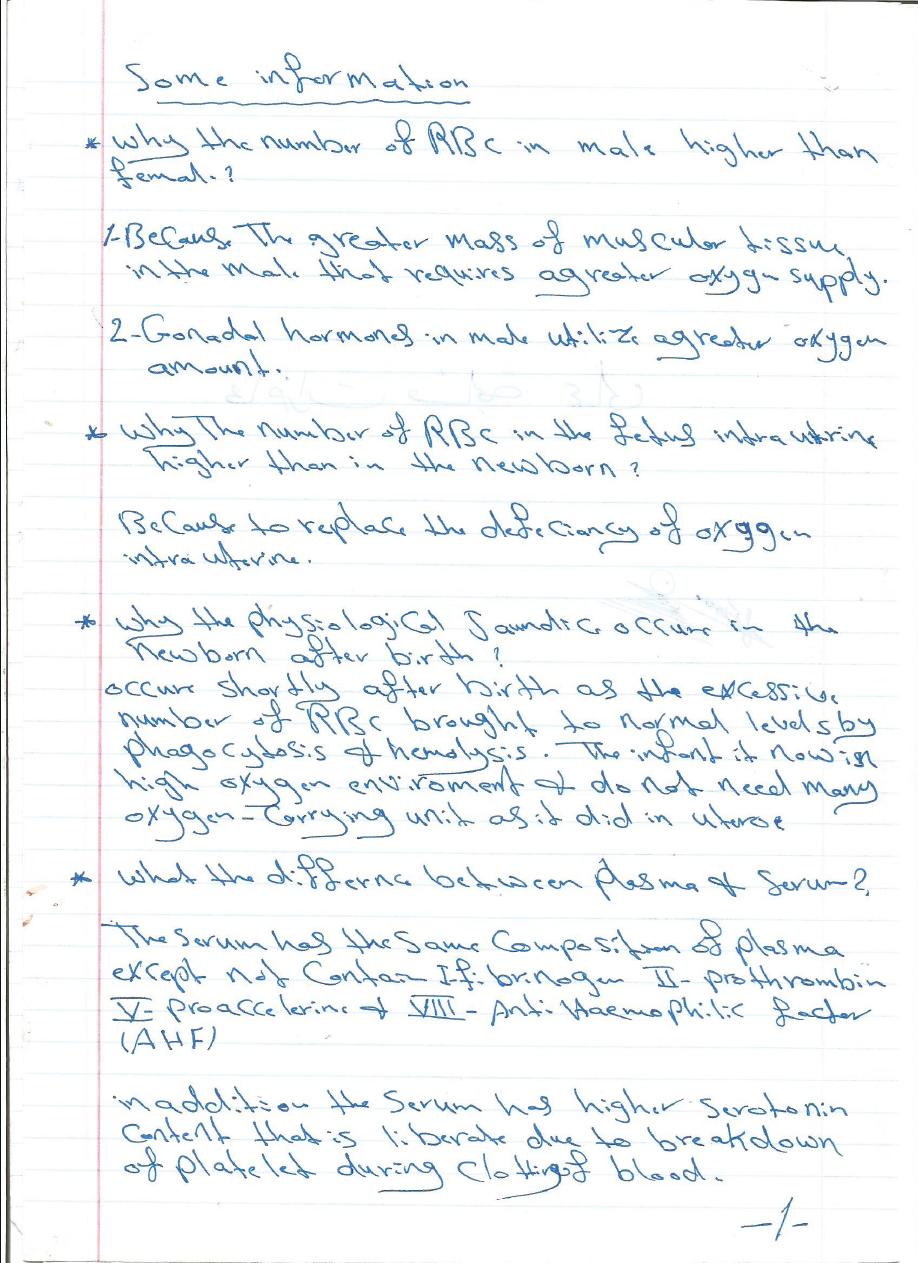 Some information
* why the number of RBC in male higher than
female?
1-Because The greater mass of muscular tissue
in the male that requires agreater oxygen supply.
2-Gonadal hormones in male utilize agreater oxygen
amount.
* why The number of RBC in the fetus intrauterine
higher than in the newborn?
Because to replace the defeciancy of oxygen
intrauterine.
* why the physiological Jaundice occure in the
newborn after birth?
occure shortly after birth as the excessive
number of RBC brought to normal levels by
phagocytosis & hemolysis. The infant it now in
high oxygen enviroment & do not need many
oxygen-Carrying unit as it did in uterose
* what the differnce between plasma & Serum?
The Serum has the Same Composition of plasma
except not Contain I fibrinogen II- prothrombin
V- proaccelerine & VIII- Anti-Haemophilic factor
(AHF)
in addition the Serum has higher Serotonin
Content that is liberate due to breakdown
of platelet during Clotting of blood.
-1-